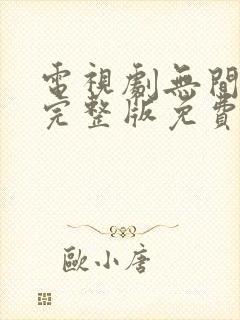 電視劇無間
完整版免費
歐小唐